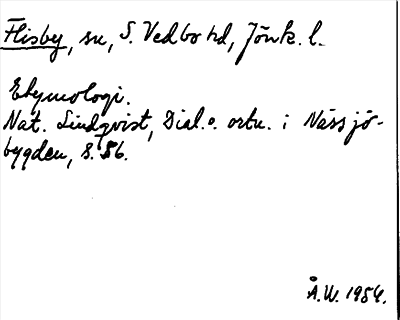 Flisby, sn, S. Vedbo hd, Jönk. l.
Etymologi.
Nat. Lindqvist, Dial. o. ortn. i Nässjö-
bygden, s. 86.
Å.W. 1954.